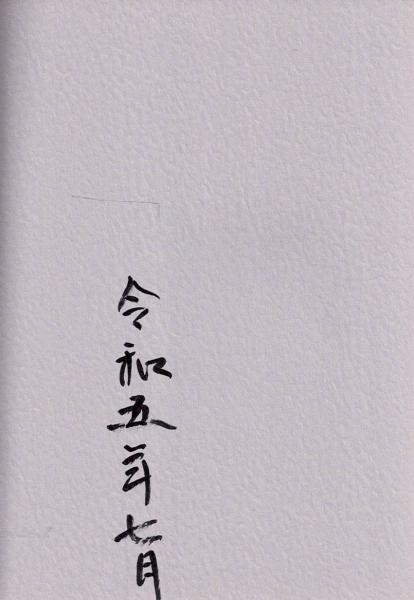 令和五年七月